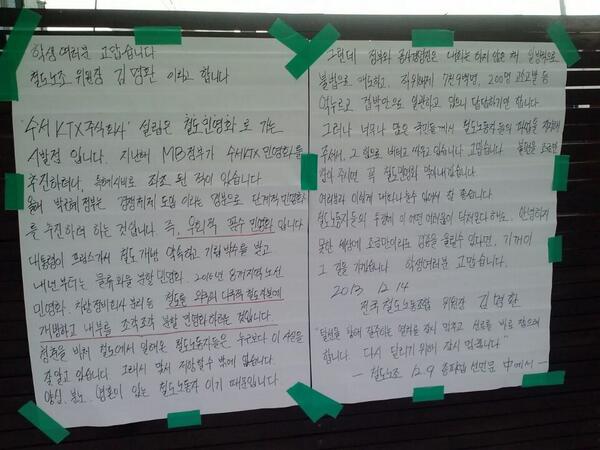 학생 여러분 고맙습니다
철도노조 위원장 김명환 이라고 합니다
'수서 KTX 주식회사' 설립은 철도민영화로 가는
시발점 입니다. 지난해 MB정부가 수서KTX 민영화를
추진하려다, 좌초 된 적이 있습니다.
올해 박근혜 정부는 경쟁체제 도입 이라는 명분으로 단계적 민영화
를 추진하려 하는 것입니다. 즉, 우회적 꼼수 민영화 입니다
대통령이 프랑스가서 철도 개방 약속하고 기립박수를 받고
내년부터는 물류화물 분할 민영화. 2015년 8개 지역 노선
민영화. 차량정비회사 분리 등 철도를 외국의 다국적 철도자본에
개방하고 내부를 조각조각 분할 민영화하려는 것입니다
청춘을 바쳐 철도에서 일해온 철도노동자들은 누구보다 이 사실을
잘 알고 있습니다. 그래서 맞서 저항할 수 밖에 없습니다.
양심, 분노, 영혼이 있는 철도노동자 이기 때문입니다.
그런데 정부와 공사경영진은 대화는 하지 않은 채 일방적으로
불법으로 매도하고, 직위해제 7천9백명, 200명 고소고발 등
억누르고 겁박만으로 일관하고 있으니 답답하기만 합니다.
그러나 너무나 많은 국민들께서 철도노동자들의 파업을 지지해
주셔서, 그 힘으로 버티고 싸우고 있습니다. 고맙습니다. 불편을 조금만
참아 주시면 꼭 철도민영화 막아내겠습니다.
여러분과 이렇게 대화 나눌수 있어서 참 좋습니다.
철도노동자들의 투쟁에 이 어떤 어려움이 닥쳐온다 해도, 안녕하지
못한 세상에 조금만이라도 울릴수 있다면, 기꺼이
그 길을 가겠습니다. 학생여러분 고맙습니다.
2013. 12. 14
전국 철도노동조합 위원장 김명환
"탈선을 향해 질주하는 열차를 잠시 멈추고 선로를 바로 잡으려
합니다. 다시 달리기 위해 잠시 멈춥니다"
- 철도노조 12.9 총파업 선언문 中에서 -